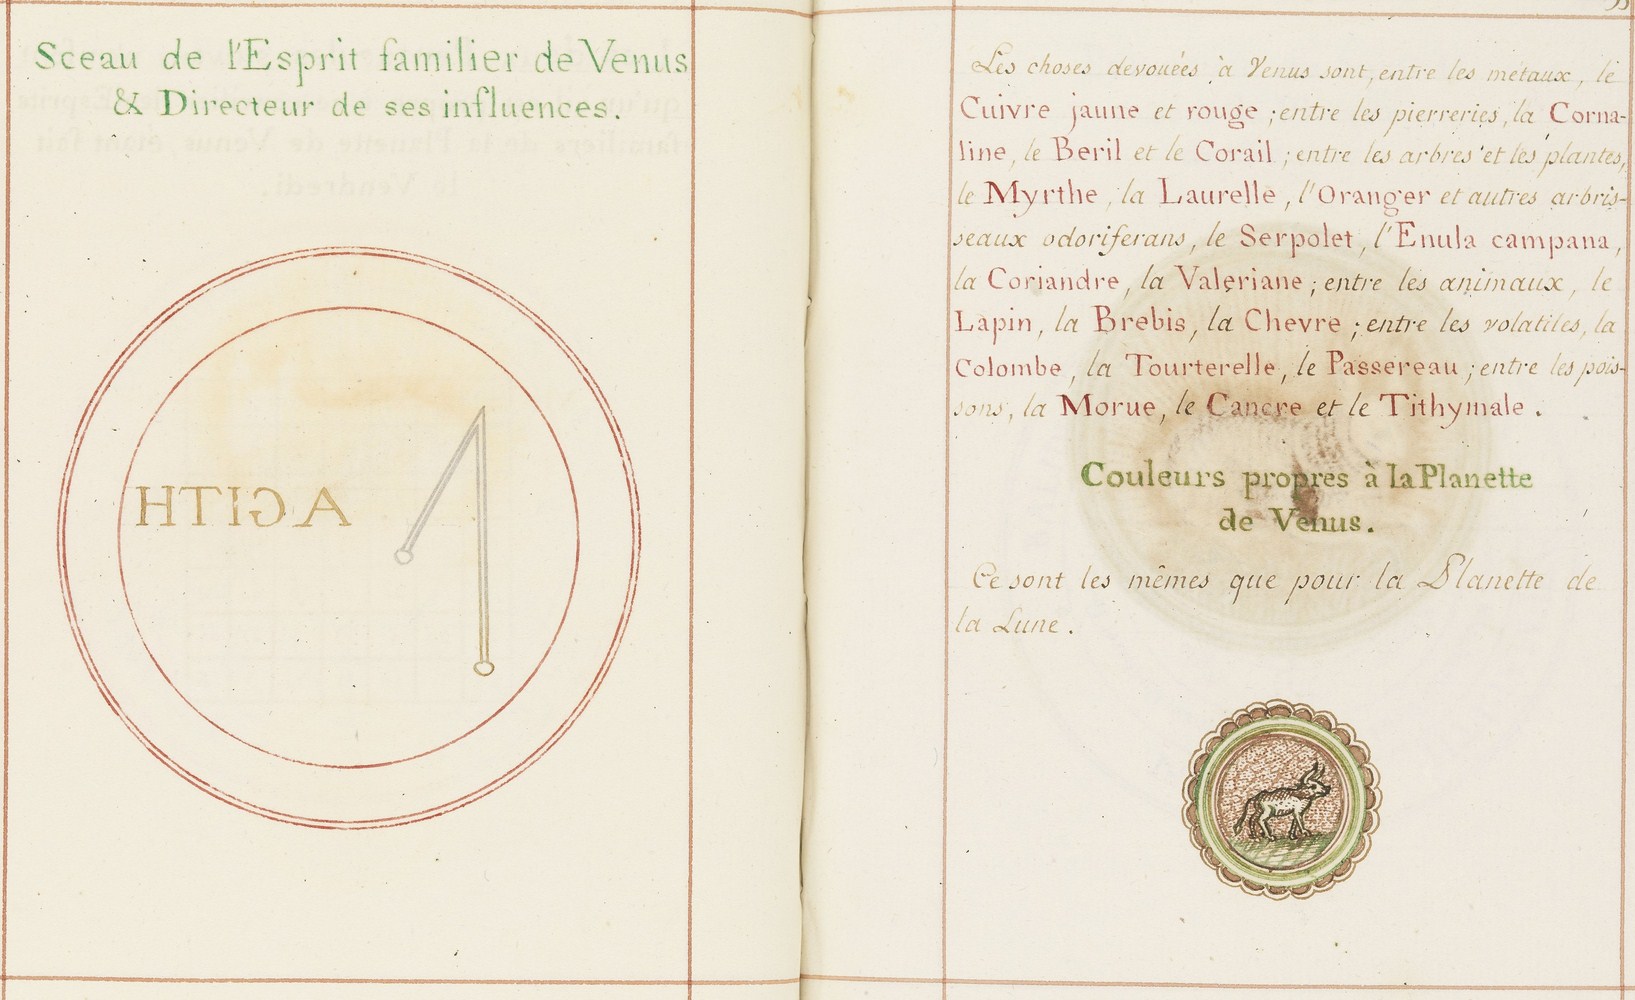 Sceau de l'Esprit familier de Venus
& Directeur de ses influences.
HTIGA
Les choses devouées à Venus sont, entre les métaux, le
Cuivre jaune et rouge ; entre les pierreries, la Corna-
line, le Beril et le Corail ; entre les arbres et les plantes,
le Myrthe, la Laurelle, l'Oranger et autres arbris-
seaux odoriferans, le Serpolet, l'Enula campana,
la Coriandre, la Valeriane ; entre les animaux, le
Lapin, la Brebis, la Chevre ; entre les volatiles, la
Colombe, la Tourterelle, le Passereau ; entre les pois-
sons, la Morue, le Cancre et le Tithymale.
Couleurs propres à la Planette
de Venus.
Ce sont les mêmes que pour la Planette de
la Lune.